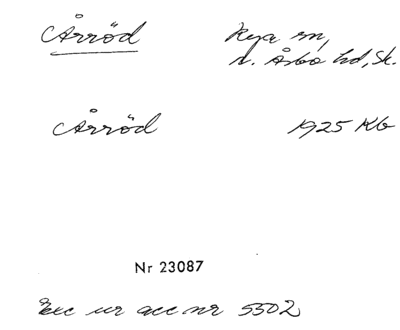 Årröd Rya sn,
N. Åsbo hd, Sk.
Årröd 1925 Kb
Nr 23087
Exc ur acc nr 5502